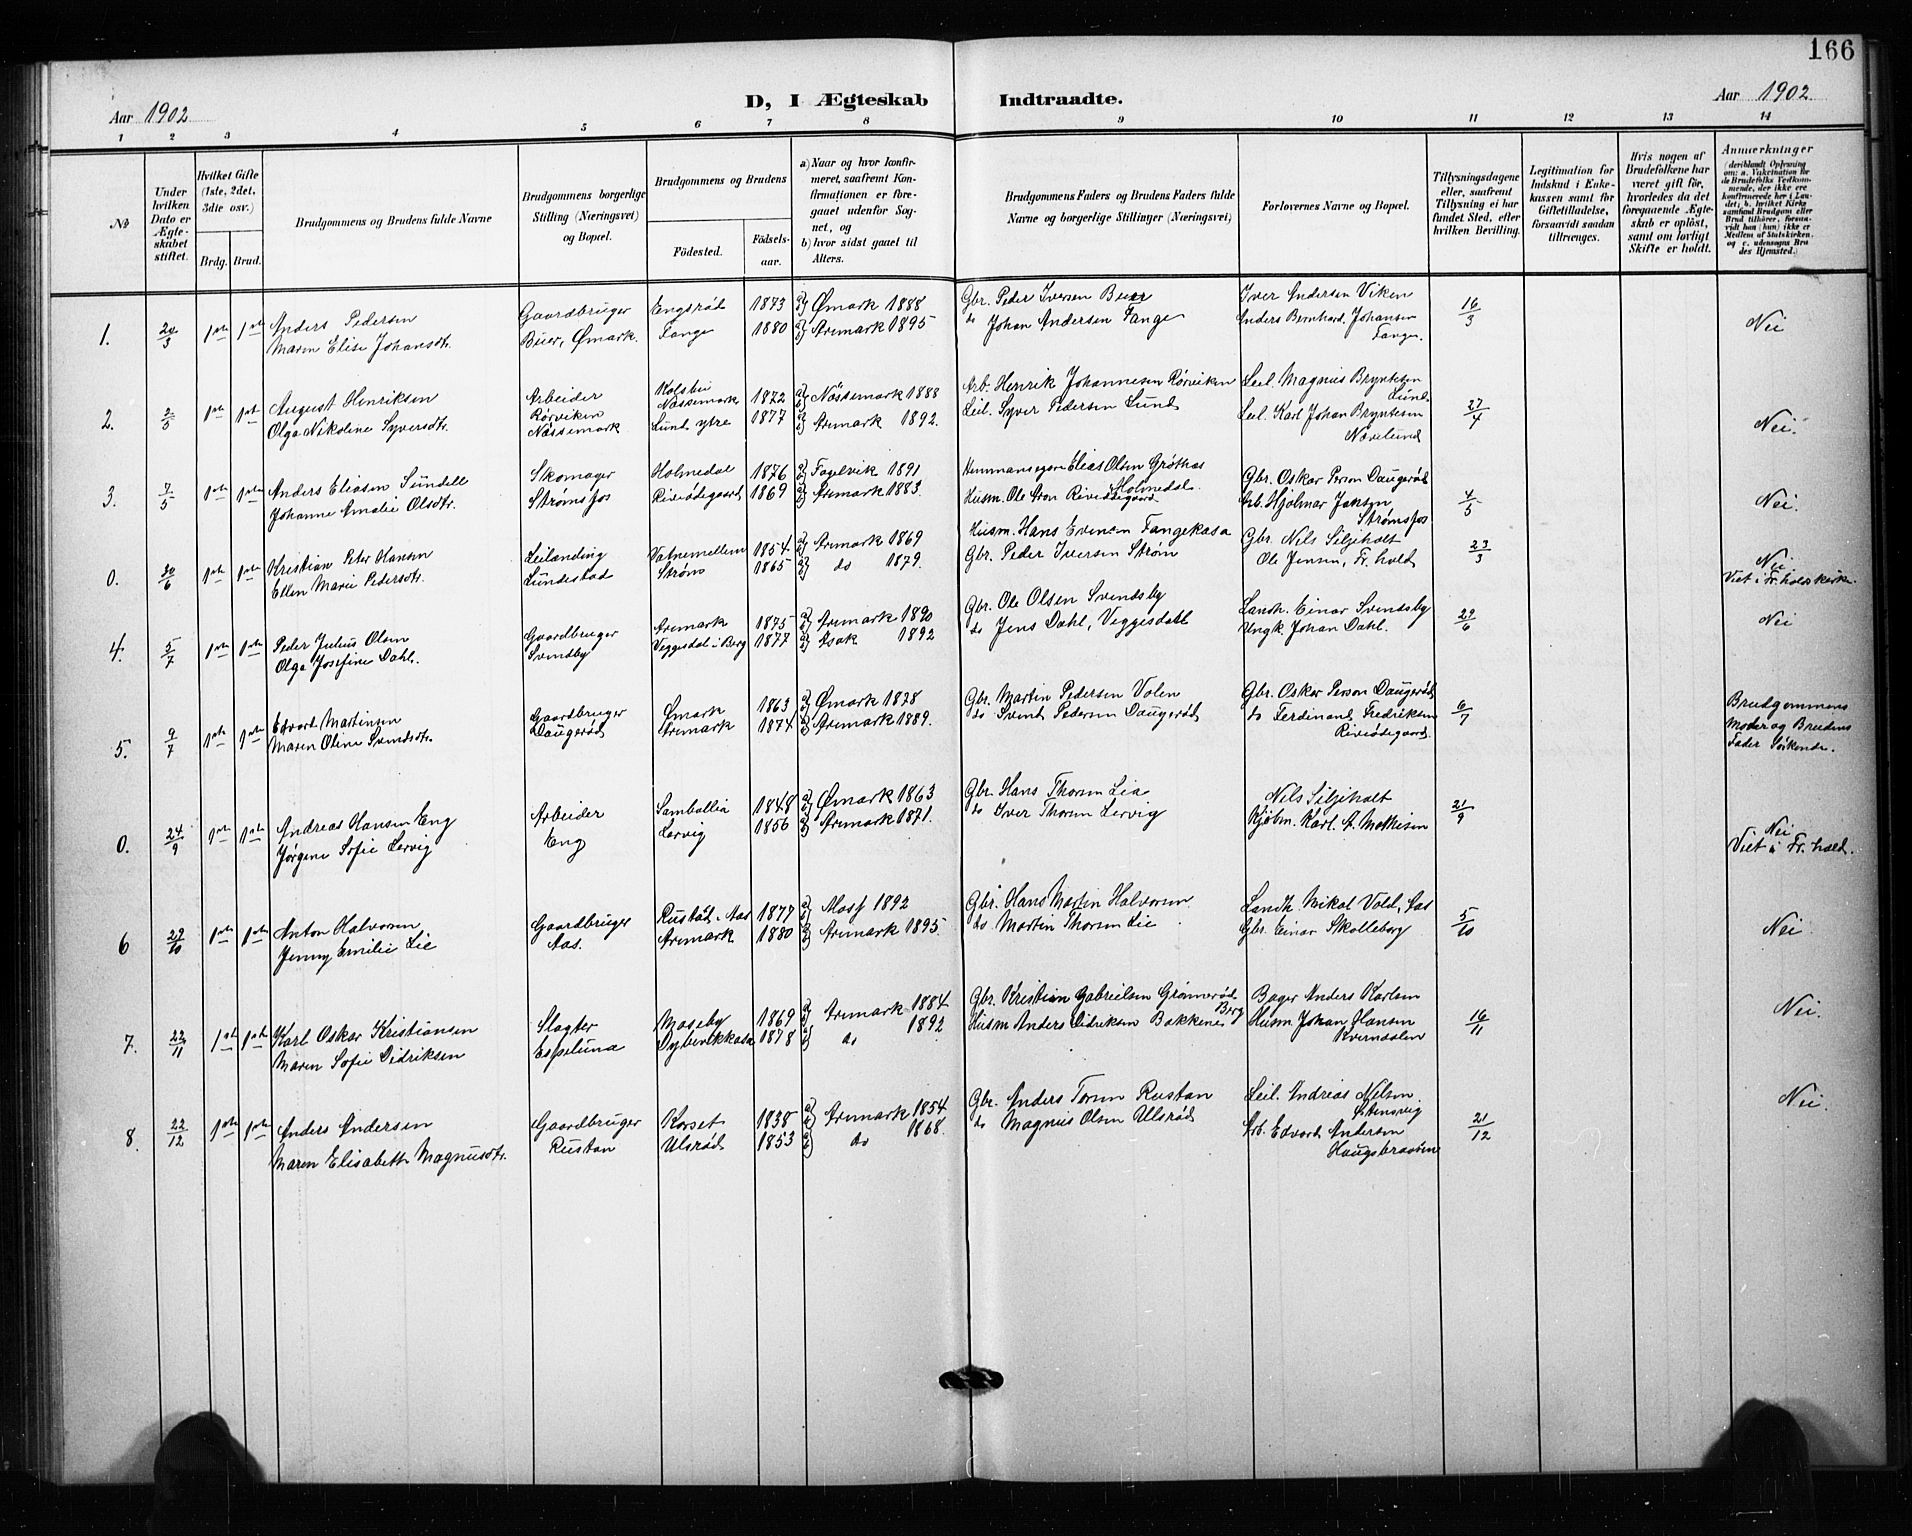 166
D, I Ægteskab Indtraadte.
Aar 1902
Aar 1902
1 2 3 4 5 6 7 8 9 10 11 12 13 14
№
Under hvilken Dato er Ægteskabet stiftet.
Hvilket Gifte (1ste, 2det, 3die osv.)
Brdg. Brud.
Brudgommens og Brudens fulde Navne
Brudgommens borgerlige Stilling (Næringsvei) og Bopæl.
Brudgommens og Brudens
Födested.
Födselsaar.
a) Naar og hvor konfirmeret, saafremt Konfirmationen er foregaaet udenfor Sognet, og
b) hvor sidst gaaet til Alters.
Brudgommens Faders og Brudens Faders fulde Navne og borgerlige Stillinger (Næringsvei)
Forlovernes Navne og Bopæl.
Tillysningsdagene eller, saafremt Tillysning ei har fundet Sted, efter hvilken Bevilling.
Legitimation for Indskud i Enkekassen samt for Giftetilladelse, forsaavidt saadan tiltrænges.
Hvis nogen af Brudefolkene har været gift för, hvorledes da det foregaaende Ægteskab er oplöst, samt om lovligt Skifte er holdt.
Anmærkninger
(deriblandt Oplysning om: a. Vakcination for de Brudefolks Vedkommende, der ikke ere konfirmerede her i Landet; b. hvilket Kirkesamfund Brudgom eller Brud tilhörer, forsaavidt han (hun) ikke er Medlem af Statskirken, og c. udensogns Brudes Hjemsted.)
1. 20/3 1ste 1ste Anders Pedersen Gaardbruger Engsröd 1873 a) Ømark 1888 Gbr. Peder Iversen Buer Iver Andersen Viken 16/3 Nei
Maren Elise Johansdtr. Buer, Ømark. Fange 1880 Aremark 1895 do Johan Andersen Fange Anders Bernhard Johansen
Fange.
2. 2/5 1ste 1ste August Henriksen Arbeider Nössemark 1872 Nössemark 1888 Arb. Henrik Johannesen Rörviken Leil. Magnus Bryntesen Lund 27/4 Nei.
Olga Nikoline Syversdtr. Rörviken Nössemark Lund ytre 1877 Aremark 1892. Leil. Syver Pedersen Lund Leil. Karl Johan Bryntesen
3. 7/5 1ste 1ste Anders Eliasen Sundell Skomager Holmedal 1876 Fagelvik 1891 Hemmansegare Elias Olsen Gröthas Holmedal Gbr. Oskar Person Daugeröd 4/5 Nei.
Johanne Amalie Olsdtr. Strömsfos 1869 Aremark 1883. Husm. Ole Aron Arb. Hjalmar Jansen Strömsfos
0. 30/6 1ste 1ste Kristian Peter Hansen Leilending Vatnemellem 1854 Aremark 1869 Husm. Hans Evensen Fangekasa Gbr. Nils Siljeholt 23/3 Nei
Ellen Marie Pedersdtr. Lundestad Ström 1865 do 1879. Gbr. Peder Iversen Ström Ole Jensen, Fr. hald Viet i Fr. halds kirke.
4. 5/7 1ste 1ste Peder Julius Olsen Gaardbruger Aremark 1875 Aremark 1890 Gbr. Ole Olsen Svendsby Landh. Einar Svendsby 29/6 Nei
Olga Josefine Dahl. Svendsby Veggesdal i Berg 1877 Asak 1892 do Jens Dahl, Veggisdahl Ungk. Johan Dahl.
5. 9/7 1ste 1ste Edvard Martinsen Gaardbruger Ømark 1863 Ømark 1878 Gbr. Martin Pedersen Volen Gbr. Oskar Person Daugeröd 6/7 Brudgommens
Maren Oline Svendsdtr. Daugeröd Aremark 1874 Aremark 1889. do Svend Pedersen Daugeröd do Ferdinand Fredriksen Moder og Brudens
Fader Söskende.
0. 24/9 1ste 1ste Andreas Hansen Eng Arbeider Sambøllia 1848 Ømark 1863 Gbr. Hans Thoresen Lia Nils Siljeholt 21/9 Nei
Jørgine Sofie Lervig Eng Lervig 1856 Aremark 1871. do Iver Thoresen Lervig Kjøbm. Karl A. Mathisen Viet i Fr. hald.
6 29/10 1ste 1ste Anton Halvorsen Gaardbruger Rustad, Aas 1877 Moss 1892 Gbr. Hans Martin Halvorsen Landh. Nikol. Vold, Aas 5/10 Nei.
Jenny Emilie Lie Aas. Aremark 1880 Aremark 1895. do Martin Thoresen Lie Gbr. Einar Skolleborg
7. 22/11 1ste 1ste Karl Oskar Kristiansen Slagter Moseby 1869 Aremark 1884 Gbr. Kristian Gabrielsen Grönneröd Berg Bager Anders Karlsen 16/11 Nei.
Maren Sofie Didriksen Espelund Dybevikkasa 1878 do 1892 Husm. Anders Didriksen Bakkene Husm. Johan Hansen
Kverndalen
8. 22/12 1ste 1ste Anders Andersen Gaardbruger Korset 1838 Aremark 1854 Gbr. Anders Torsen Rustan Leil. Andreas Nilsen Stensvig 21/12 Nei.
Maren Elisabeth Magnusdtr. Rustan Ulsröd 1853 do 1868. do Magnus Olsen Ulsröd Arb. Edvard Andersen